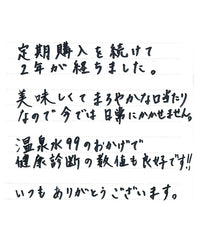 定期購入を続けて
2年が経ちました。
美味しくてまろやかな口当たり
なので今では日常にかかせません。
温泉水99のおかげで
健康診断の数値も良好です!!
いつもありがとうございます。